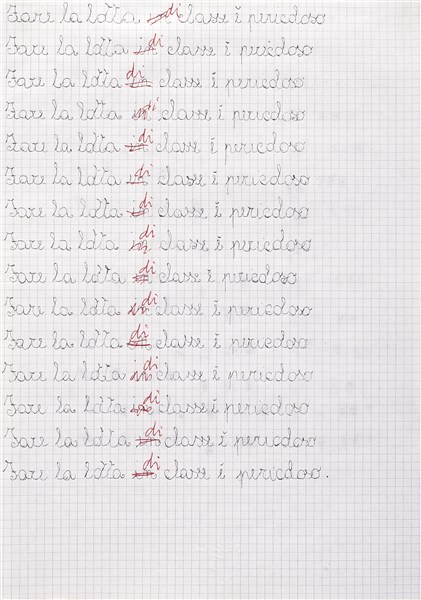 Fare la lotta di classe è pericoloso
Fare la lotta di classe è pericoloso
Fare la lotta di classe è pericoloso
Fare la lotta di classe è pericoloso
Fare la lotta di classe è pericoloso
Fare la lotta di classe è pericoloso
Fare la lotta di classe è pericoloso
Fare la lotta di classe è pericoloso
Fare la lotta di classe è pericoloso
Fare la lotta di classe è pericoloso
Fare la lotta di classe è pericoloso
Fare la lotta di classe è pericoloso
Fare la lotta di classe è pericoloso
Fare la lotta di classe è pericoloso
Fare la lotta di classe è pericoloso.